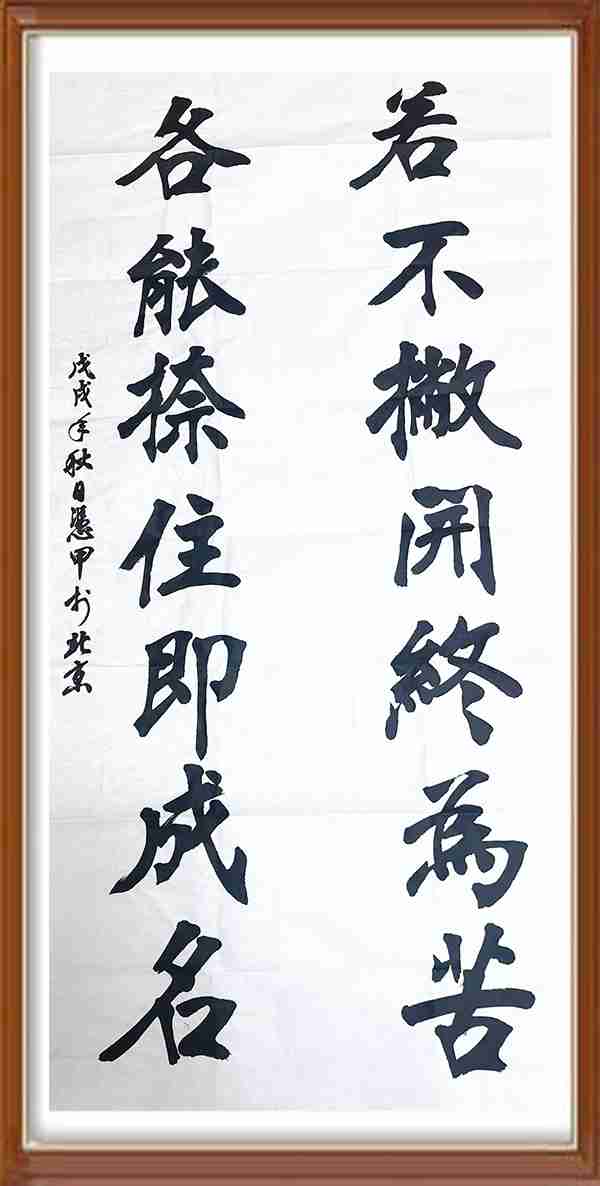 若不撇開終為苦
各能捺住即成名
戊戌年秋日憑甲於北京